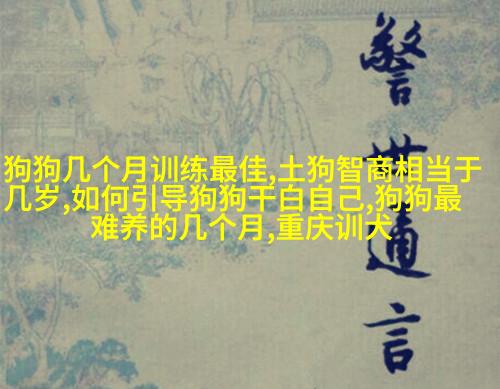 狗狗几个月训练最佳,土狗智商相当于
几岁,如何引导狗狗干白自己,狗狗最
难养的几个月,重庆训犬
警世通言